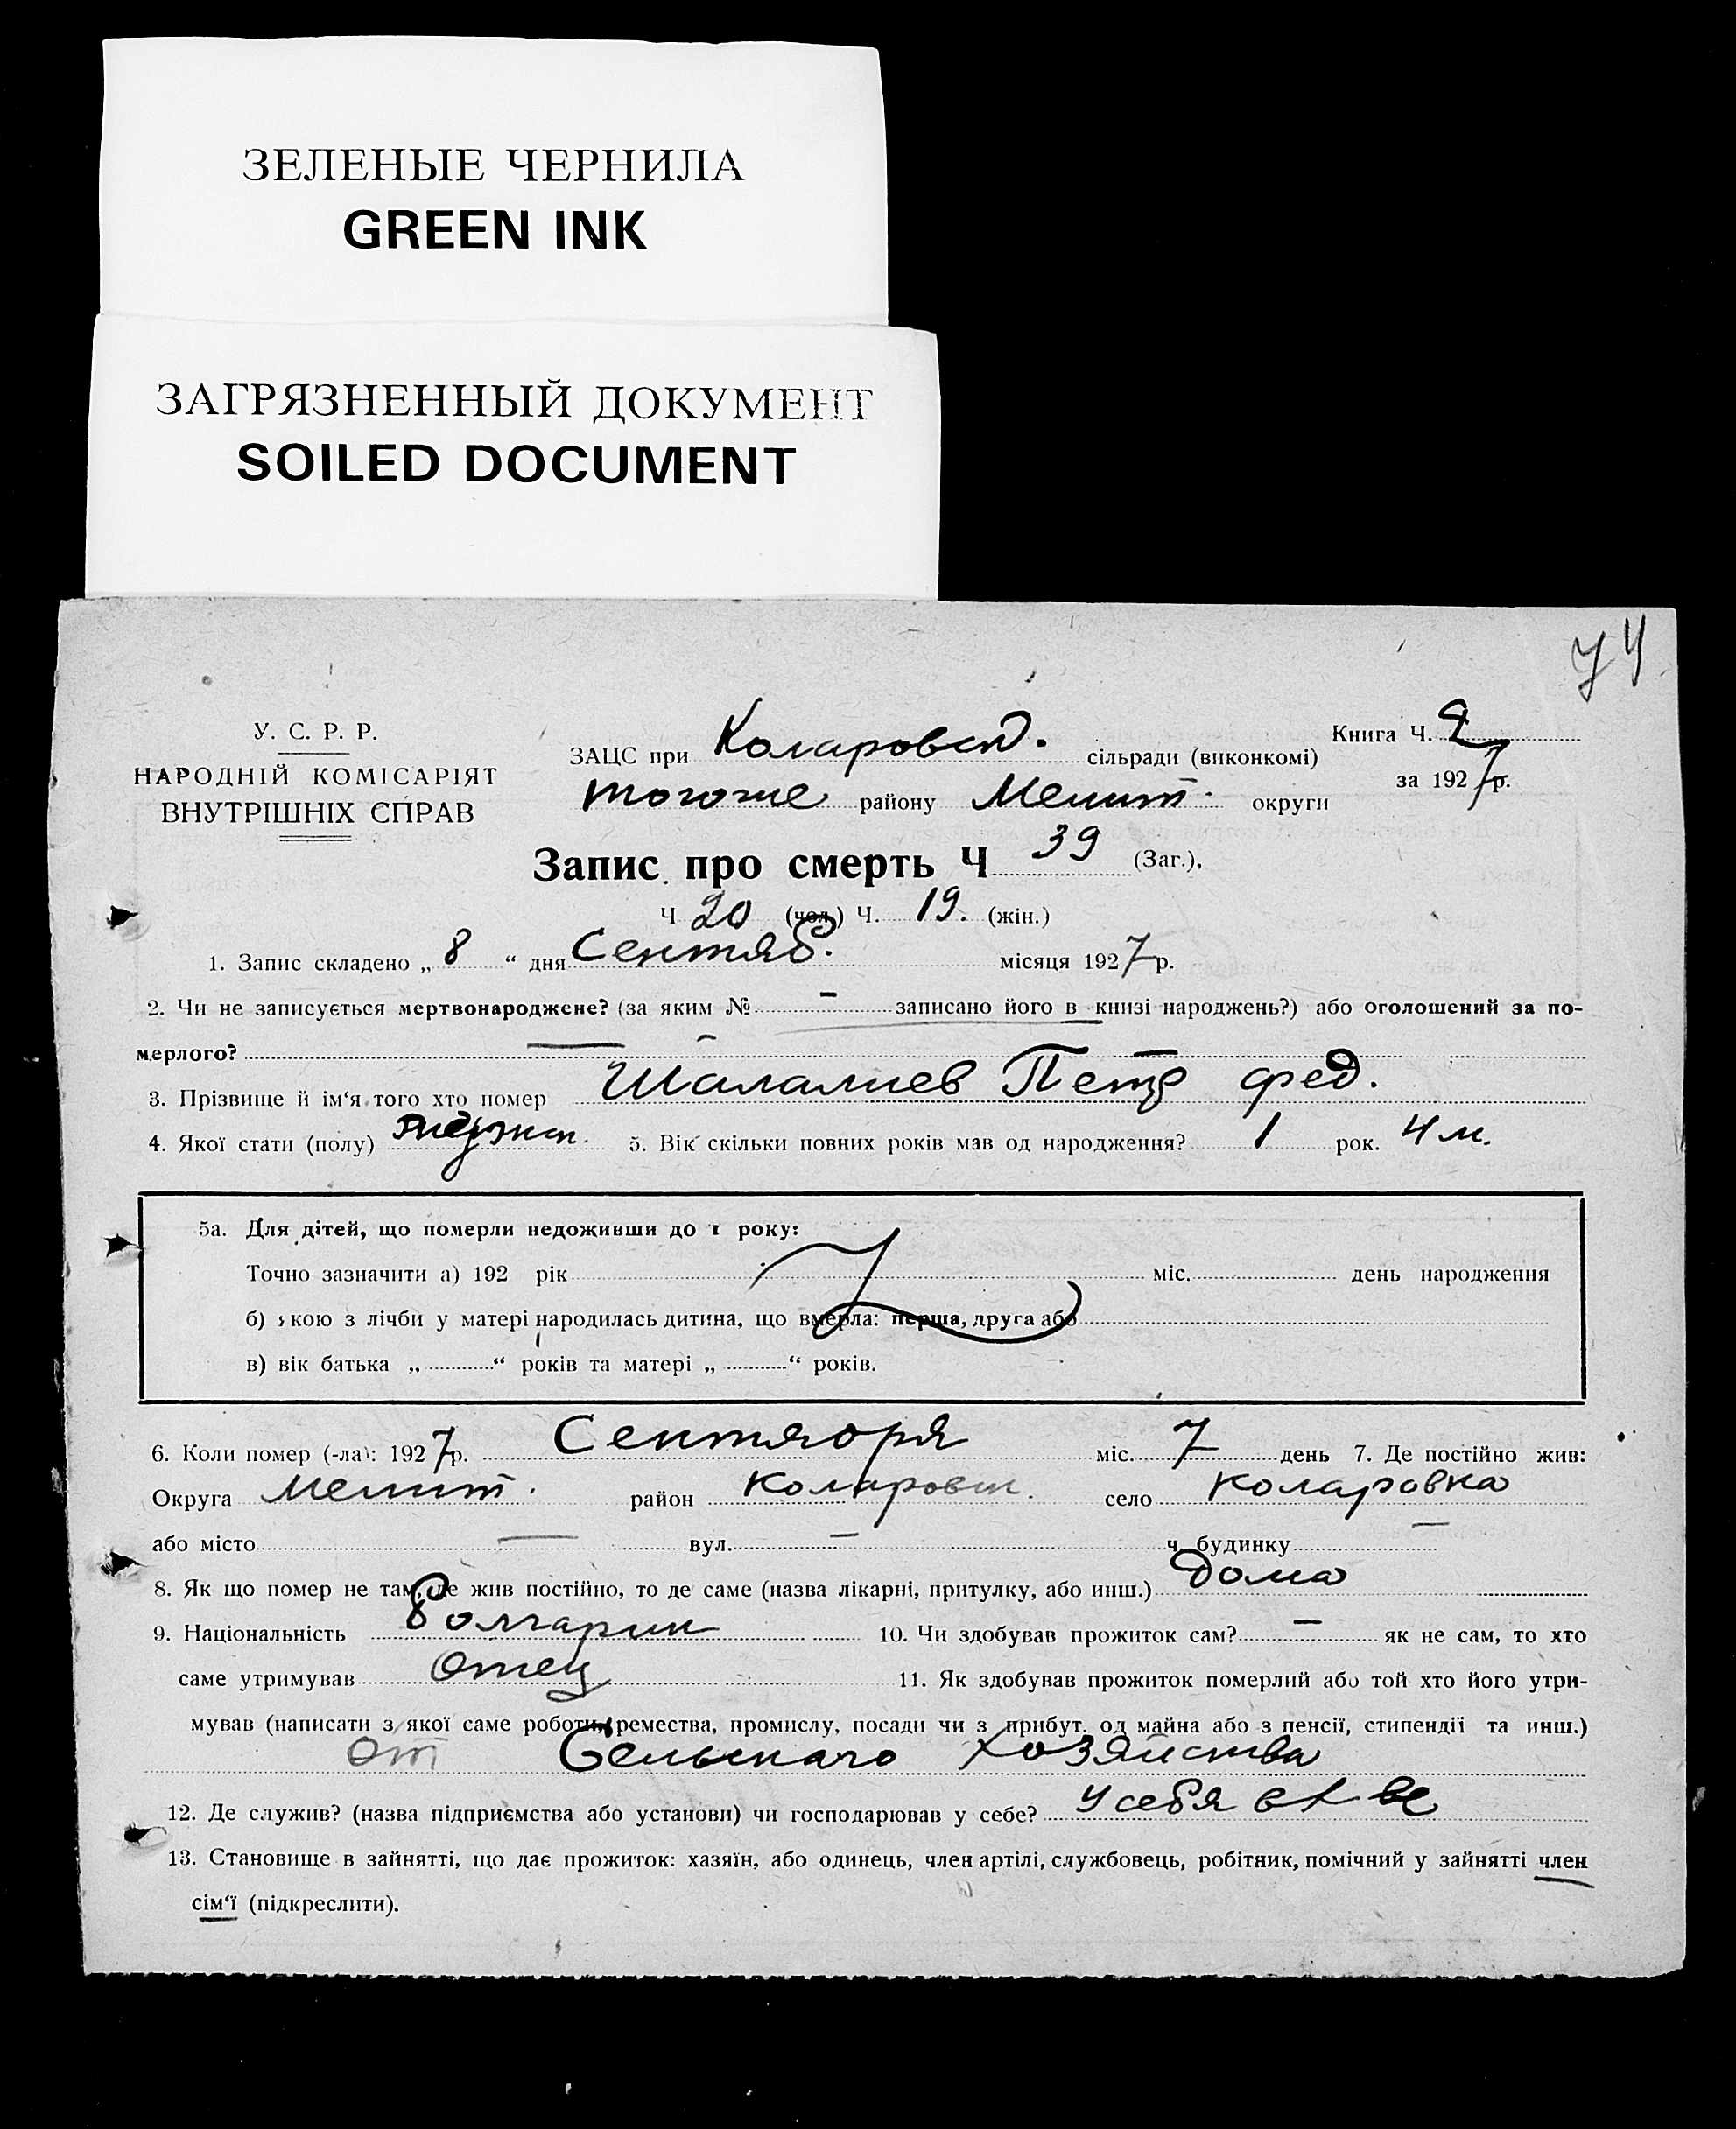 ЗЕЛЕНЫЕ ЧЕРНИЛА
GREEN INK
ЗАГРЯЗНЕННЫЙ ДОКУМЕНТ
SOILED DOCUMENT
74
У. С. Р. Р.
НАРОДНІЙ КОМІСАРІЯТ
ВНУТРІШНІХ СПРАВ
ЗАЦС при Коларовск. сільради (виконкомі)
тогоже району Мелит. округи
Книга Ч. 2
за 1927 р.
Запис про смерть Ч 39 (Заг.),
Ч 20 (чол.) Ч. 19. (жін.)
1. Запис складено „ 8 “ дня Сентяб. місяця 1927 р.
2. Чи не записується мертвонароджене? (за яким № – записано його в книзі народжень?) або оголошений за по-
мерлого? —
3. Прізвище й ім‘я того хто помер Шалалиев Петр Фед.
4. Якої стати (полу) мужск. 5. Вік скільки повних років мав од народження? 1 рок. 4 м.
5а. Для дітей, що померли недоживши до 1 року:
Точно зазначити а) 192 рік міс. день народження
б) кою з лічби у матері народилась дитина, що вмерла: перша, друга або
в) вік батька „ “ років та матері „ “ років.
6. Коли помер (-ла): 1927 р. Сентяоря міс. 7 день 7. Де постійно жив:
Округа Мелит. район Коларовск. село Коларовка
або місто — вул. — ч. будинку —
8. Як що помер не там, де жив постійно, то де саме (назва лікарні, притулку, або инш.) дома
9. Національність болгарин 10. Чи здобував прожиток сам? — як не сам, то хто
саме утримував Отец 11. Як здобував прожиток померлий або той хто його утри-
мував (написати з якої саме роботи, ремества, промислу, посади чи з прибут. од майна або з пенсії, стипендії та инш.)
от Сельскаго хозяйства
12. Де служив? (назва підприємства або установи) чи господарював у себе? у себя в
13. Становище в зайнятті, що дає прожиток: хазяїн, або одинець, член артілі, службовець, робітник, помічний у зайнятті член
сім‘ї (підкреслити).